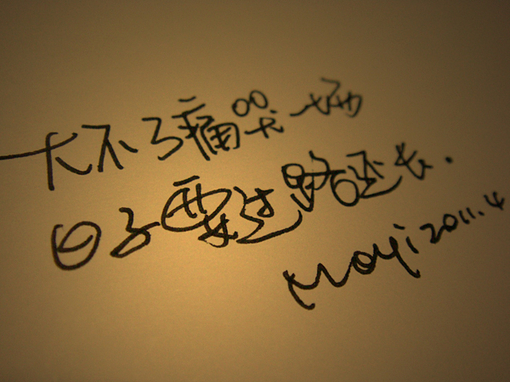 大不了痛哭一场
日子要过路还长.
Moyi 2011.4